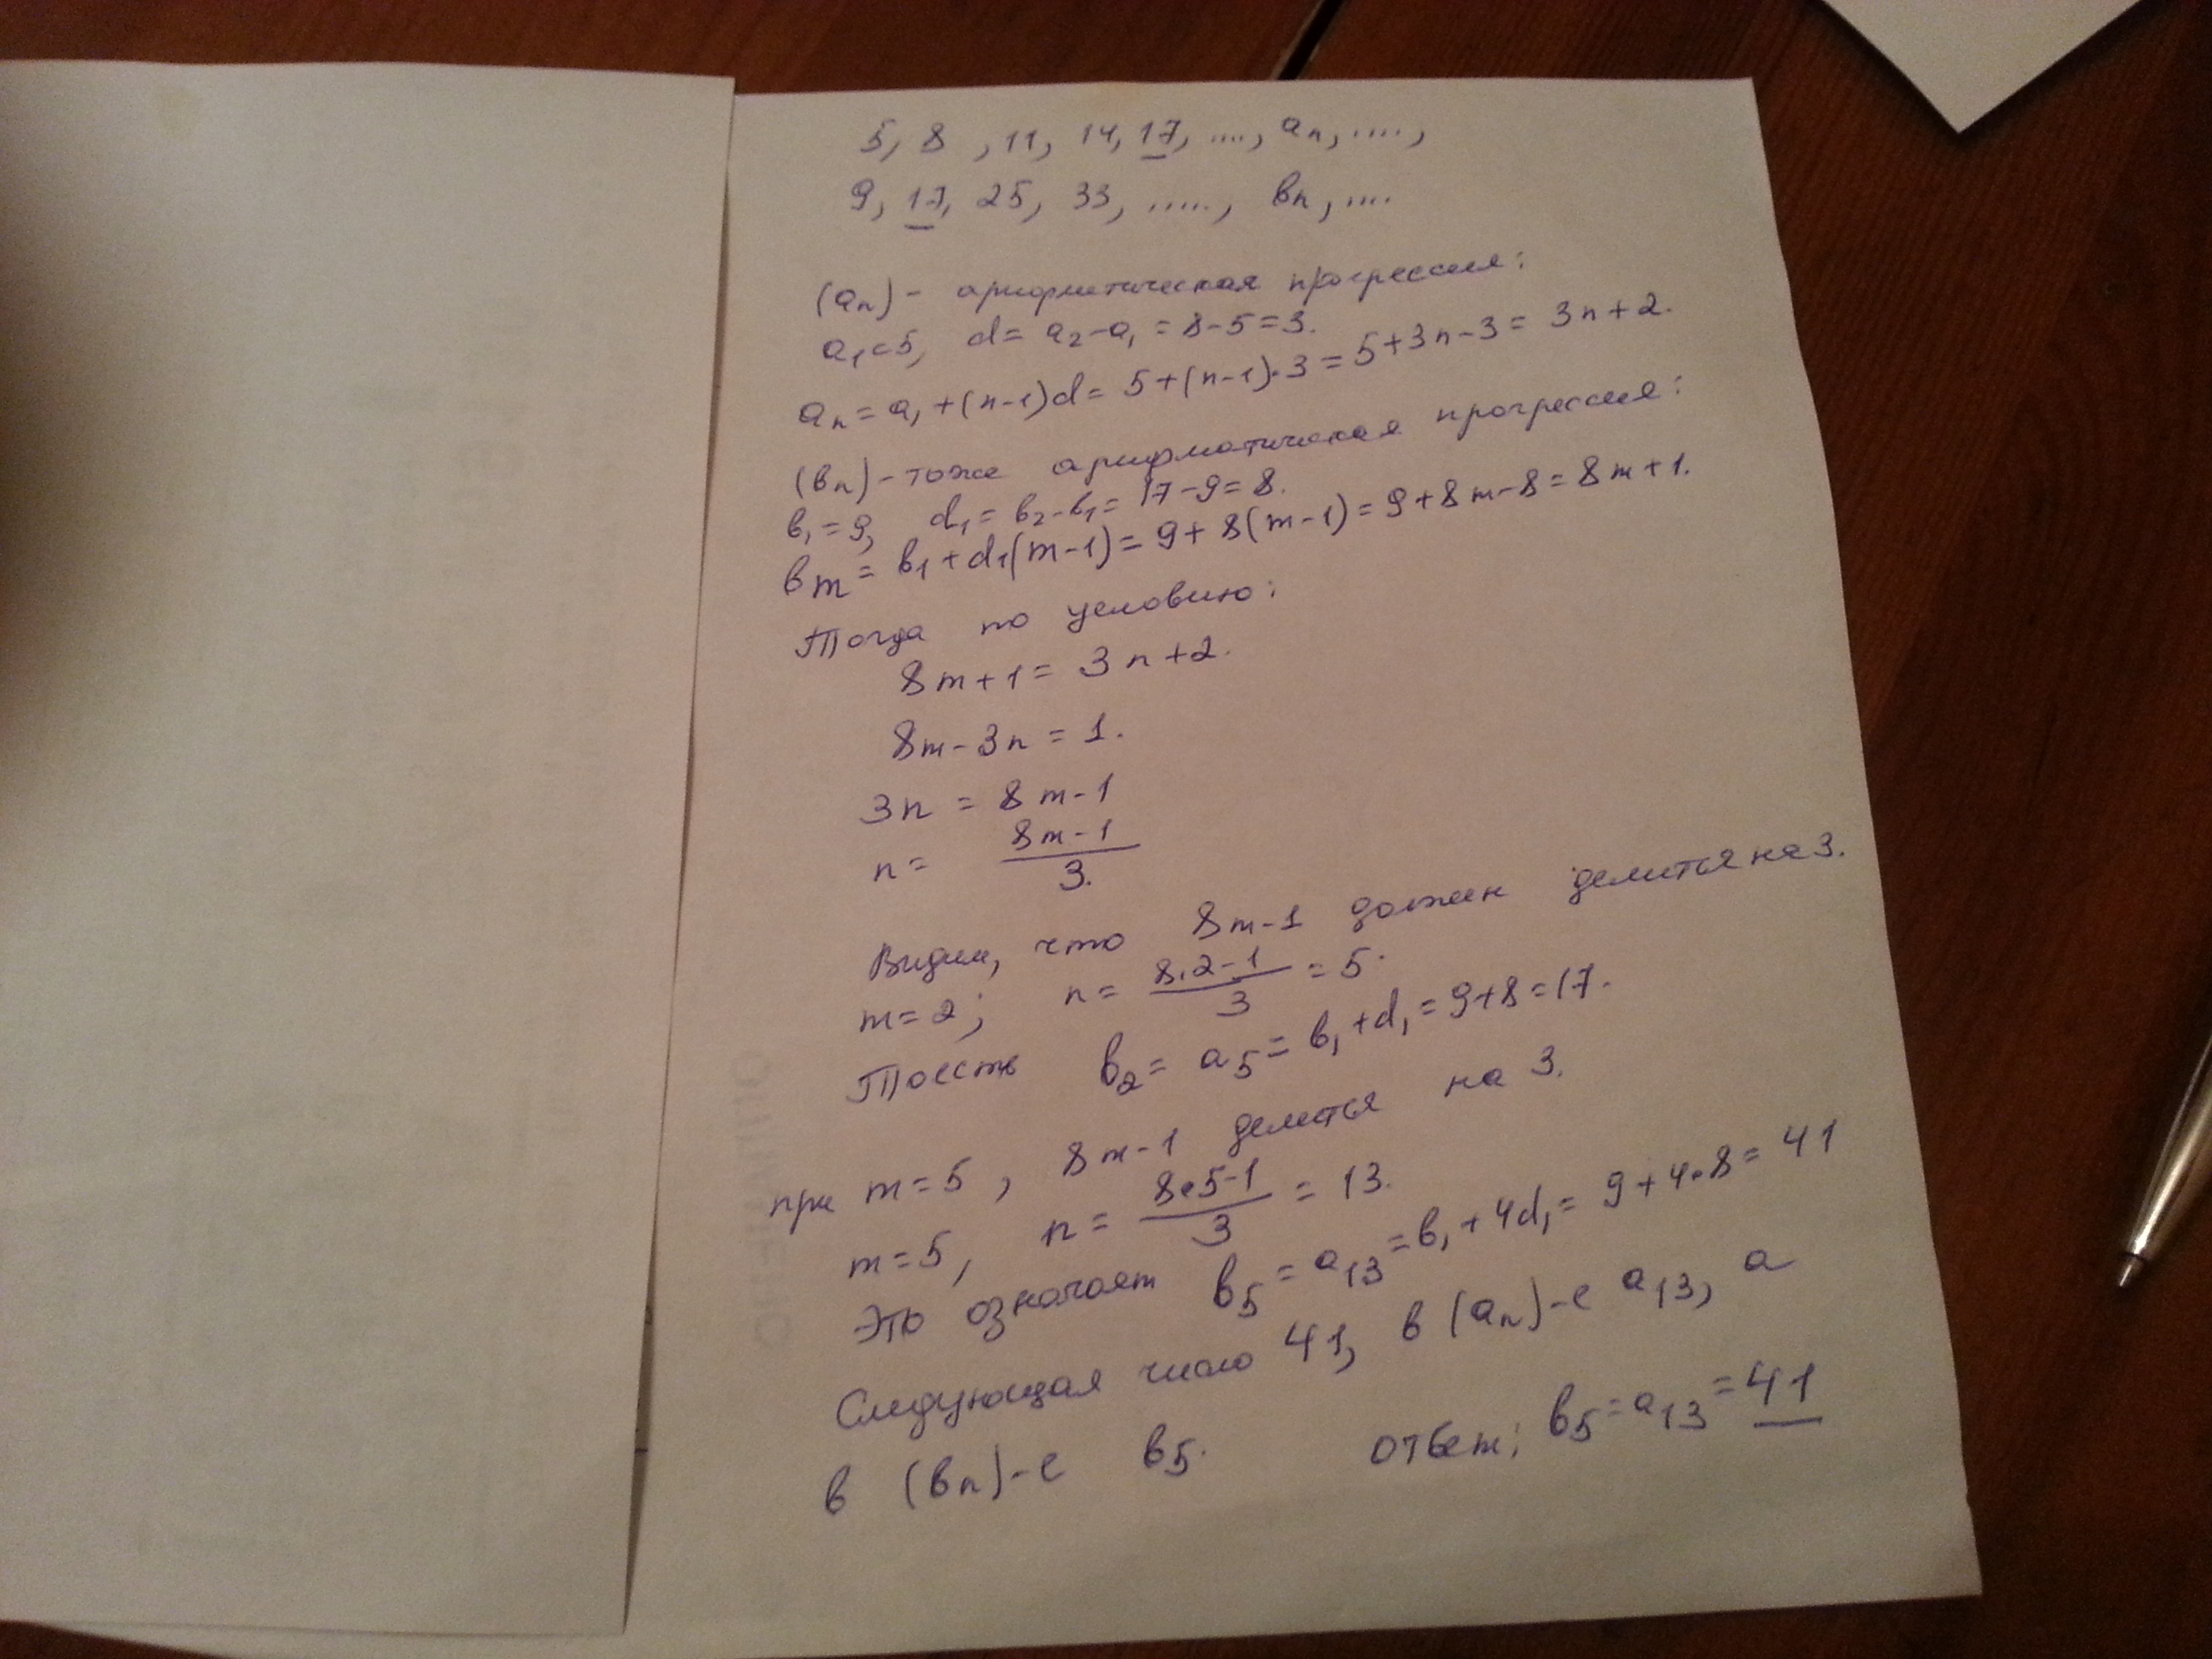 5, 8, 11, 14, 17, ...., aₙ, ....,
9, 17, 25, 33, ....., вₙ, ....
(aₙ) - арифметическая прогрессия:
a₁=5, d= a₂-a₁ = 8-5=3.
aₙ = a₁ + (n-1)d = 5+(n-1)·3 = 5+3n-3 = 3n+2.
(вₙ) - тоже арифметическая прогрессия:
в₁=9, d₁ = в₂-в₁ = 17-9=8.
вm = в₁+d₁(m-1) = 9+8(m-1) = 9+8m-8 = 8m+1.
Тогда по условию:
8m+1 = 3n+2.
8m-3n = 1.
3n = 8m-1
n = (8m-1)/3.
Видим, что 8m-1 должен делится на 3.
m=2; n = (8·2-1)/3 = 5.
Тоесть в₂ = a₅ = в₁+d₁ = 9+8=17.
при m=5, 8m-1 делится на 3.
m=5, n = (8·5-1)/3 = 13.
Это означает в₅ = a₁₃ = в₁+4d₁ = 9+4·8 = 41
Следующая число 41, в (aₙ)-е a₁₃, а
в (вₙ)-е в₅. ответ; в₅=a₁₃=41